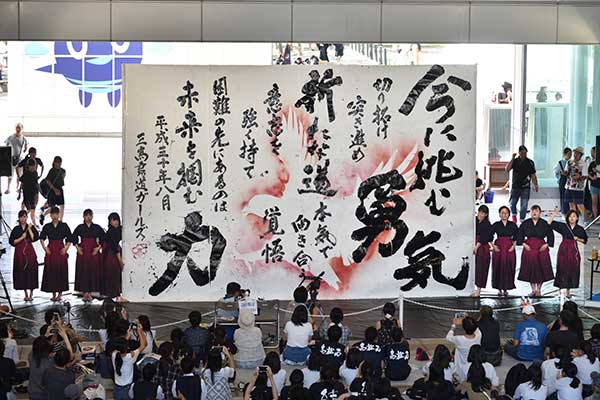 今に挑む
勇気
切り拓け
突き進め
新たな道
本気で
向き合う
覚悟
意志を
強く持て
困難の先にあるのは
未来を掴む
力
平成三十年八月
三島書道ガールズ